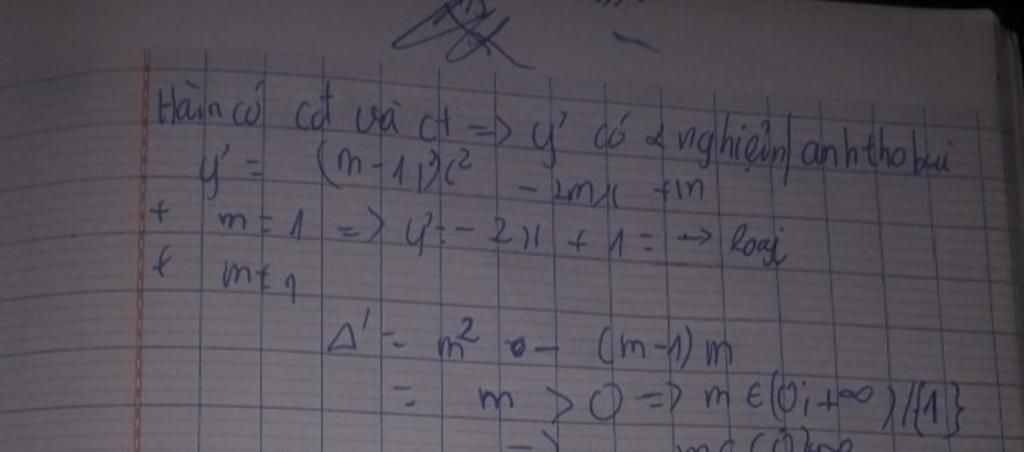 Hàm có cđ và ct => y' có 2 nghiệm / anhthobui
y' = (m-1)x² - 2mx + m
+ m = 1 => y' = - 2x + 1 = → loại
+ m ≠ 1
Δ' = m² - (m-1) m
= m > 0 => m ∈ (0; +∞) / {1}